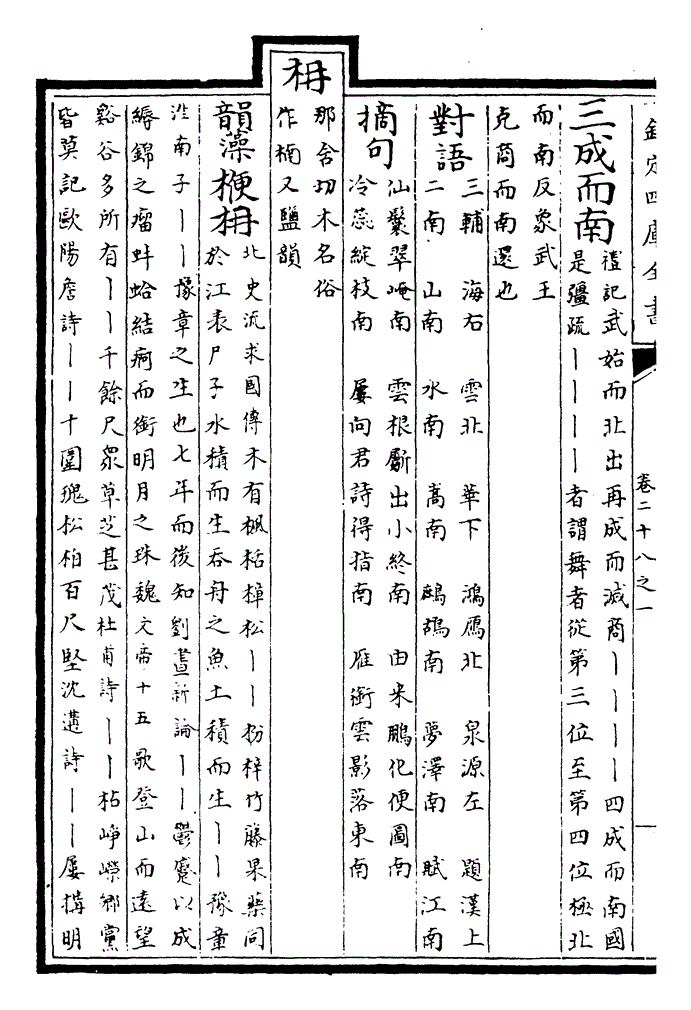 欽定四庫全書
卷二十八之一
三成而南
禮記武始而北出再成而滅商丨丨丨丨四成而南國
是疆疏丨丨丨丨者謂舞者從第三位至第四位極北
而南反象武王
克商而南還也
對語
三輔 海右 雲北 華下 鴻鴈北 泉源左 題漢上
二南 山南 水南 高南 鷓鴣南 夢澤南 賦江南
摘句
汕鬟翠崦南 雲根斸出小終南 由來鵬化便圖南
冷蕊綻枝南 屢向君詩得指南 雁銜雲影落東南
枏
那含切木名俗
作楠又鹽韻
韻藻
楩枏
北史流求國傳木有楓栝樟松丨丨枌梓竹藤果藥同
於江表尸子水積而生吞舟之魚土積而生丨丨豫章
淮南子丨丨豫章之生也七年而後知劉晝新論丨丨鬱蹙以成
縟錦之瘤蚌蛤結痾而銜明月之珠魏文帝十五歌登山而遠望
谿谷多所有丨丨千餘尺衆草芝甚茂杜甫詩丨丨枯崢嶸鄉黨
皆莫記歐陽詹詩丨丨十圍瑰松柏百尺堅沈遘詩丨丨屢搆明